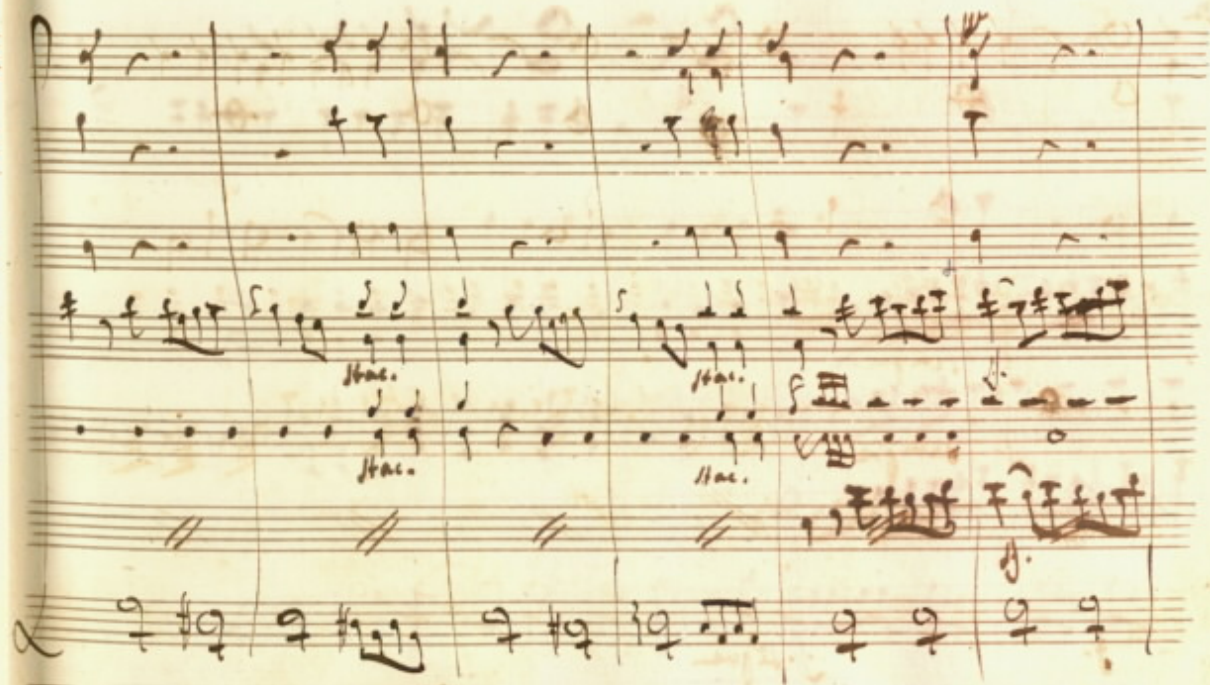 stac. stac.
stac. stac.
sf.
sf.